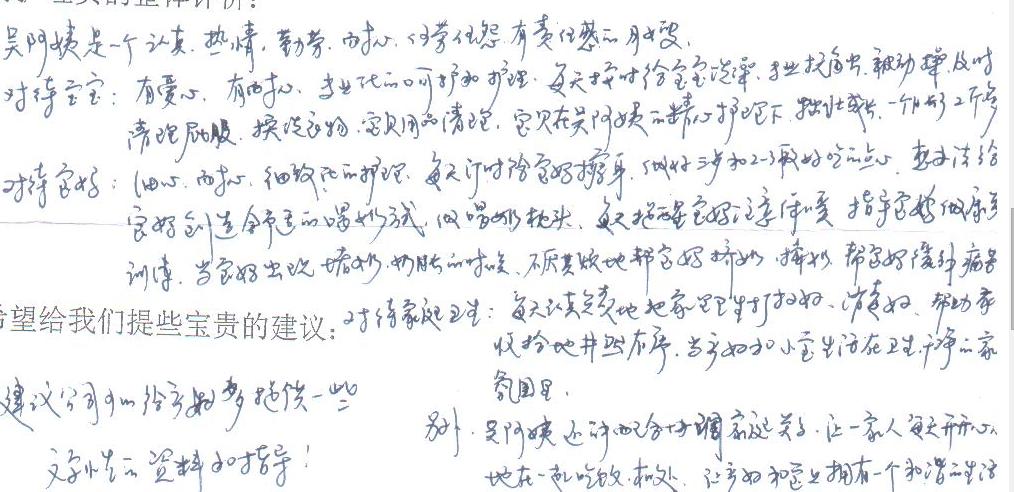 宝贝的整体评价:
吴阿姨是一个认真、热情、勤劳、耐心、任劳任怨、有责任感的月嫂。
对待宝宝:有爱心、有耐心、专业化的呵护和护理。每天按时给宝宝洗澡、专业抚触、被动操、及时
清理屁股、换洗衣物、宝贝用品清理。宝贝在吴阿姨的精心护理下,茁壮成长,一个月长了2个多
对待宝妈:细心、耐心、细致化的护理。每天订时给宝妈擦身,做好三步和2-3顿好吃的点心,想办法给
宝妈创造合适的喂奶方式,做喂奶枕头。每天提醒宝妈注意保暖,指导宝妈做康复
训练。当宝妈出现堵奶、奶胀的时候,不厌其烦地帮宝妈挤奶、揉奶,帮宝妈缓解痛苦
希望给我们提些宝贵的建议:
对待家庭卫生:每天认真负责地把家里卫生打扫好、消毒好,帮助家
收拾地井然有序,当产妇和小宝生活在卫生、干净的家
氛围里。
建议公司可以给产妇多提供一些
文字性的资料和指导!
另外,吴阿姨还积极配合协调家庭关系,让一家人每天开开心心
地在一起吃饭、相处,让产妇和宝宝拥有一个和谐的生活